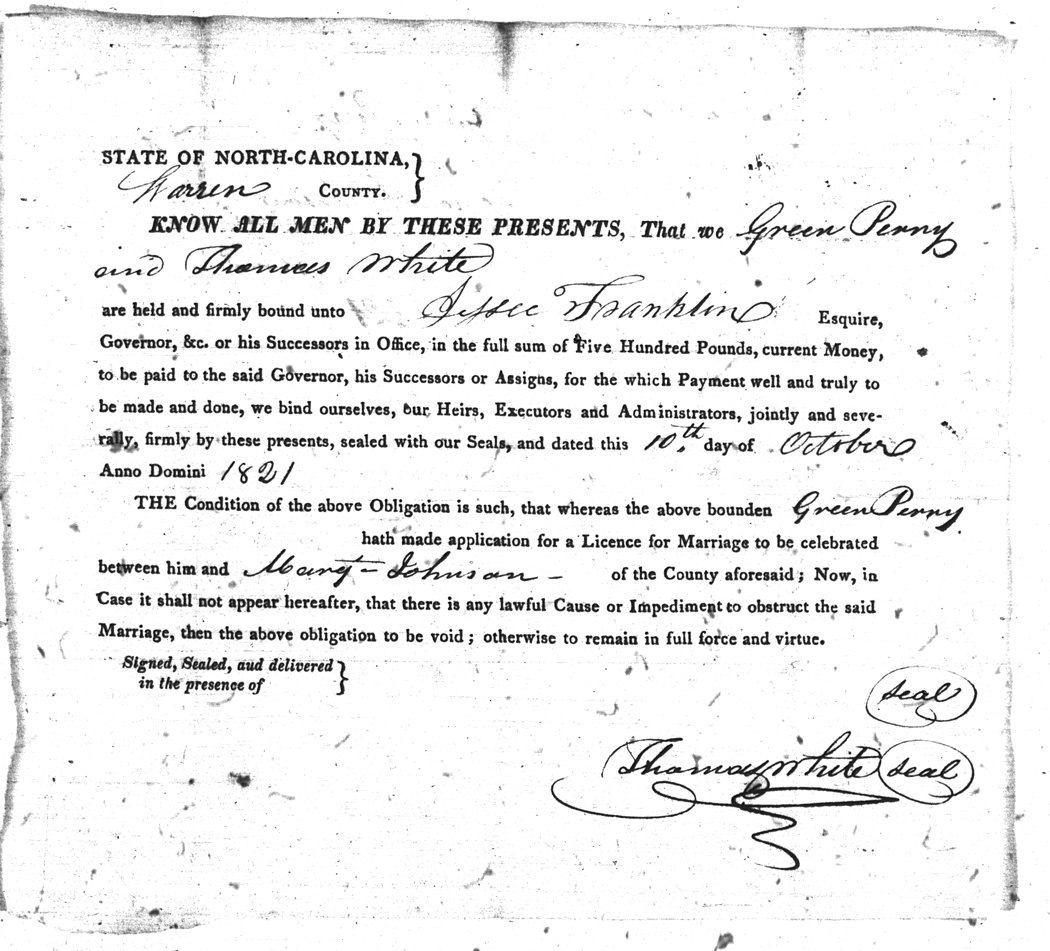 STATE OF NORTH-CAROLINA, }
Warren COUNTY.
KNOW ALL MEN BY THESE PRESENTS, That we Green Perry
and Thomas White
are held and firmly bound unto Jesse Franklin Esquire,
Governor, &c. or his Successors in Office, in the full sum of Five Hundred Pounds, current Money,
to be paid to the said Governor, his Successors or Assigns, for the which Payment well and truly to
be made and done, we bind ourselves, our Heirs, Executors and Administrators, jointly and seve-
rally, firmly by these presents, sealed with our Seals, and dated this 10.th day of October
Anno Domini 1821
THE Condition of the above Obligation is such, that whereas the above bounden Green Perry
hath made application for a Licence for Marriage to be celebrated
between him and Mary - Johnson - of the County aforesaid; Now, in
Case it shall not appear hereafter, that there is any lawful Cause or Impediment to obstruct the said
Marriage, then the above obligation to be void; otherwise to remain in full force and virtue.
Signed, Sealed, aud delivered }
in the presence of
seal
Thomas White seal